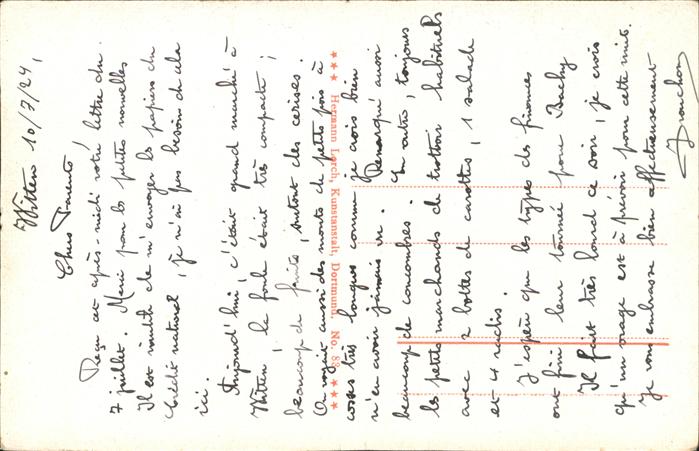 Witten 10/7/24,
Chers Parents!
Reçu cet après-midi votre lettre du
7 juillet. Merci pour les petites nouvelles
Il est inutile de m'envoyer les papiers du
Crédit national, je n'ai pas besoin de cela
ici.
Aujourd'hui, c'était grand marché à
Witten, la foule était très compacte;
beaucoup de fruits, surtout des cerises.
On voyait aussi des monts de petits pois à
cosses très longues comme je crois bien
n'en avoir jamais vu. Remarqué aussi
beaucoup de concombres. En outre, toujours
les petits marchands de trottoir habituels
avec 2 bottes de carottes, 1 salade
et 4 radis.
J'espère que les types des finances
ont fini leur tournée pour Bachy
Il fait très lourd ce soir, je crois
qu'un orage est à prévoir pour cette nuit.
Je vous embrasse bien affectueusement
*** Hermann Lorch, Kunstanstalt, Dortmund. No. 83 ***